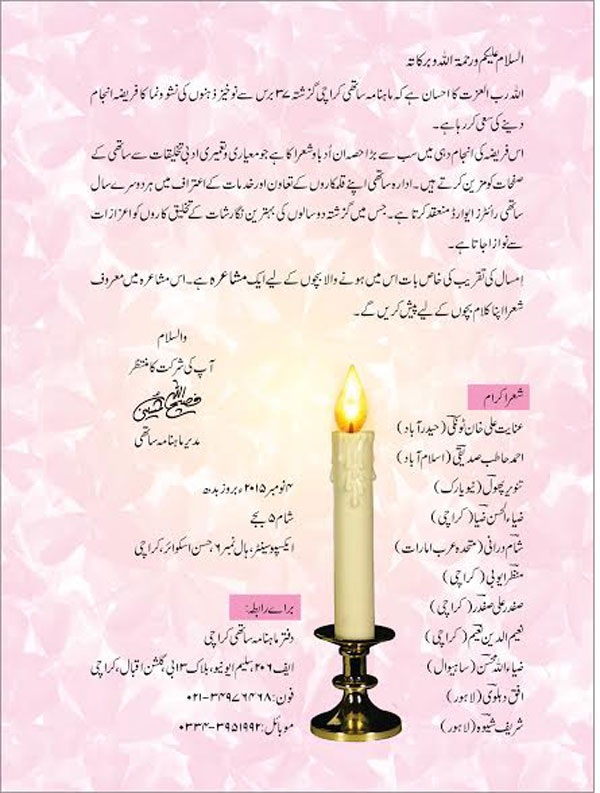 السلام علیکم ورحمۃ اللہ وبرکاتہ
اللہ رب العزت کا احسان ہے کہ ماہنامہ ساتھی کراچی گزشتہ ۳۷ برس سے نوخیز ذہنوں کی نشوونما کا فریضہ انجام
دینے کی سعی کررہا ہے۔
اس فریضہ کی انجام دہی میں سب سے بڑا حصہ ان اُدبا وشعرا کا ہے جو معیاری وتعمیری ادبی تخلیقات سے ساتھی کے
صفحات کو مزین کرتے ہیں۔ ادارہ ساتھی اپنے قلمکاروں کے تعاون اور خدمات کے اعتراف میں ہر دوسرے سال
ساتھی رائٹرز ایوارڈ منعقد کرتا ہے۔ جس میں گزشتہ دو سالوں کی بہترین نگارشات کے تخلیق کاروں کو اعزازات
سے نوازا جاتا ہے۔
اِمسال کی تقریب کی خاص بات اس میں ہونے والا بچوں کے لیے ایک مشاعرہ ہے۔ اس مشاعرہ میں معروف
شعرا اپنا کلام بچوں کے لیے پیش کریں گے۔
والسلام
آپ کی شرکت کا منتظر
فصیح اللہ حسینی
مدیر ماہنامہ ساتھی
شعرا کرام
عنایت علی خان ٹونکی (حیدرآباد)
احمد حاطب صدیقی (اسلام آباد)
تنویر پھول (نیویارک)
ضیاء الحسن ضیا (کراچی)
شام درانی (متحدہ عرب امارات)
منظر ایوبی (کراچی)
صفدر علی صفدر (کراچی)
نعیم الدین نعیم (کراچی)
ضیاء اللہ محسن (ساہیوال)
افق دہلوی (لاہور)
شریف شیوہ (لاہور)
۴ نومبر ۲۰۱۵ء بروز بدھ
شام ۵ بجے
ایکسپو سینٹر، ہال نمبر ۶، حسن اسکوائر، کراچی
براے رابطہ:
دفتر ماہنامہ ساتھی کراچی
ایف ۲۰۶، سلیم ایونیو، بلاک ۱۳ بی، گلشن اقبال، کراچی
فون: ۰۲۱-۳۴۹۷۶۴۶۸
موبائل: ۰۳۳۴-۳۹۵۱۹۹۲